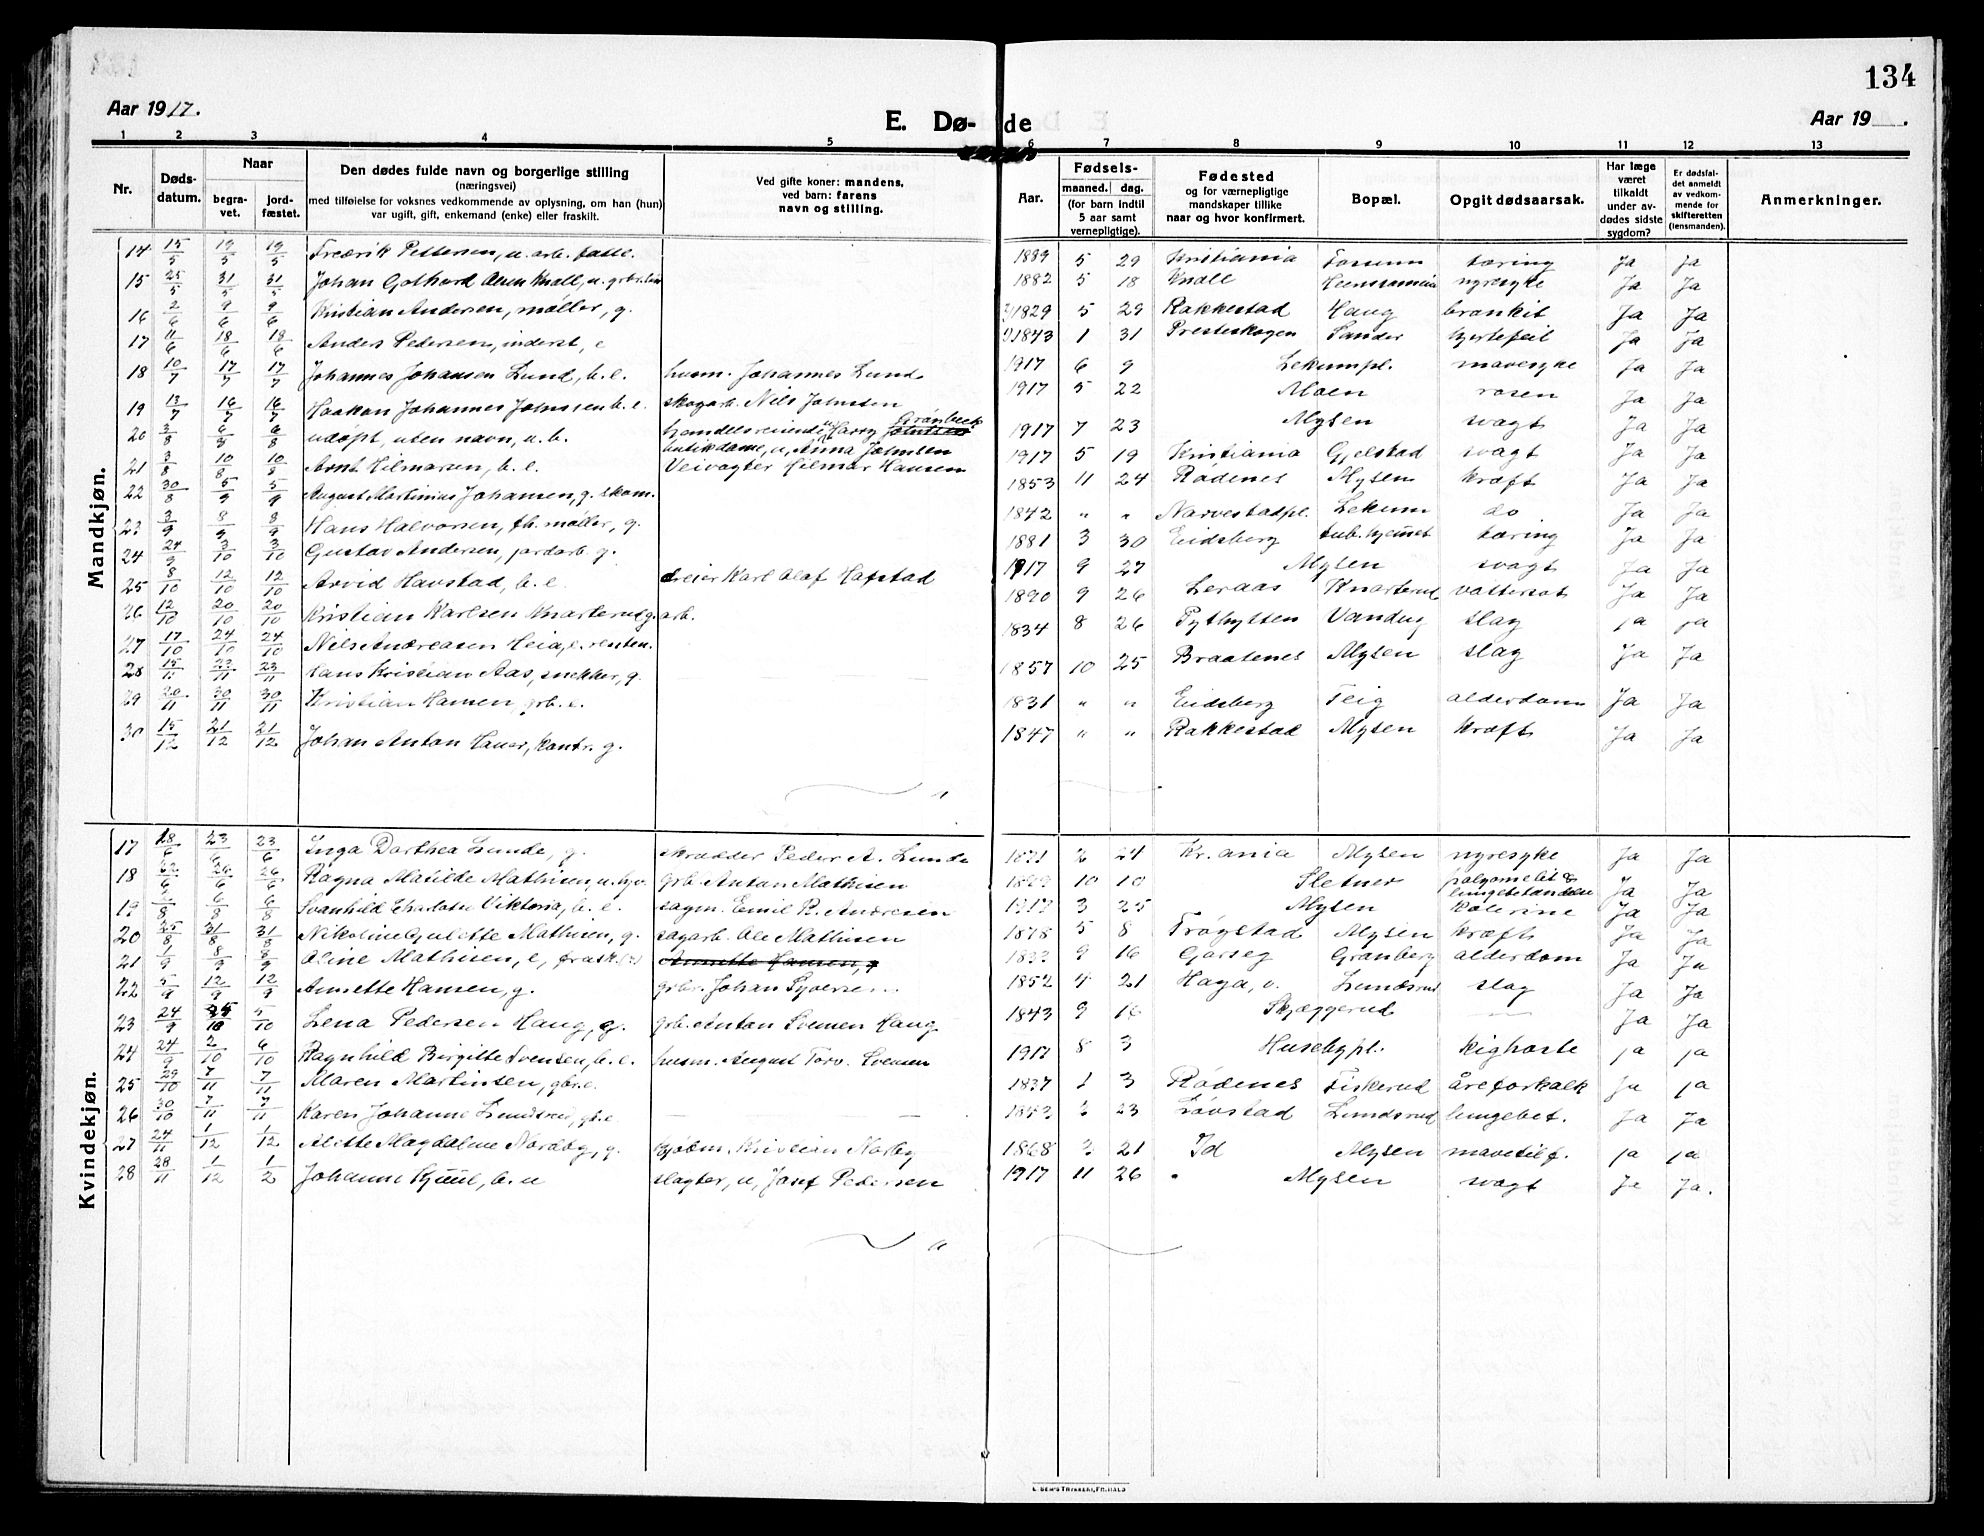 134
Aar 1917.
E. Dø-de
Aar 19 .
1 2 3 4 5 6 7 8 9 10 11 12 13
Nr.
Døds-datum.
Naar
begra-vet.
jord-fæstet.
Den dødes fulde navn og borgerlige stilling
(næringsvei)
med tilføielse for voksnes vedkommende av oplysning, om han (hun)
var ugift, gift, enkemand (enke) eller fraskilt.
Ved gifte koner: mandens,
ved barn: farens
navn og stilling.
Aar.
Fødsels-
maaned. dag.
(for barn indtil
5 aar samt
vernepligtige).
Fødested
og for værnepligtige
mandskaper tillike
naar og hvor konfirmert.
Bopæl.
Opgit dødsaarsak.
Har læge
været
tilkaldt
under av-
dødes sidste
sygdom?
Er dødsfal-
det anmeldt
av vedkom-
mende for
skifteretten
(lensmanden).
Anmerkninger.
Mandkjøn.
14 15/5 19/5 19/5 Fredrik Pettersen, u. arb. 1889 5 29 Kristiania Fossum tæring Ja Ja
15 25/5 31/5 31/5 Johan Gothard Olsen Knoll, u. 1882 5 18 Knoll nyresyke Ja Ja
16 2/6 9/6 9/6 Kristian Andersen, møller, g. 1829 5 29 Rakkestad Haug bronkit Ja Ja
17 11/6 18/6 18/6 Anders Pedersen, inderst, e 1843 1 31 Presteskogen Sander hjertefeil Ja Ja
18 10/7 17/7 17/7 Johannes Johansen Lund, b. e. husm. Johannes Lund 1917 6 9 Lekumpl. mavesyke Ja Ja
19 13/7 16/7 16/7 Haakon Johannes Johnssen b. e. skogarb. Nils Johnsen 1917 5 22 Moen rosen Ja Ja
20 3/8 6/8 6/8 udøpt, uten navn, u. b. handelsreisende Harry Grønbeck
butikdame, u, Anna Johnsen 1917 7 23 Mysen svagt Ja Ja
21 3/8 10/8 10/8 Arnt Hilmarsen, b. e. Veivogter Hilmar Hansen 1917 5 19 Kristiania Gjelstad svagt Ja Ja
22 30/8 5/9 5/9 August Martinius Johansen, g. skom. 1853 11 24 Rødenes Mysen kræft Ja Ja
23 3/9 8/9 8/9 Hans Halvorsen, fh. møller, g. 1842 " " Narvestadpl. Lekum do Ja Ja
24 24/9 3/10 3/10 Gustav Andersen, jordarb. g. 1881 3 30 Eidsberg tub. hjemet tæring Ja Ja
25 8/10 12/10 12/10 Arvid Havstad, b. e. dreier Karl Olaf Hafstad 1917 9 27 Mysen svagt Ja Ja
26 12/10 20/10 20/10 Kristian Karlsen Knarterud g. arb. 1890 9 26 Leraas Knarterud vattersot Ja Ja
27 17/10 24/10 24/10 Nils Andreasen Heia, e. renten. 1834 8 26 Vandug slag ja ja
28 15/11 23/11 23/11 Hans Kristian Aas, snekker, g. 1857 10 25 Braatenes Mysen slag Ja Ja
29 20/11 30/11 30/11 Kristian Hansen grb. e. 1831 " " Eidsberg Teig alderdom Ja Ja
30 15/12 21/12 21/12 Johan Anton Hauer, kontr. g. 1847 " " Rakkestad Mysen kræft Ja Ja
Kvindekjøn.
17 18/6 23/6 23/6 Inga Dorthea Lunde, g. skrædder Peder A. Lunde 2 24 Kr.ania Mysen nyresyke Ja Ja
18 26/6 26/6 Ragna Matilde Mathisen, u. grb. Anton Mathisen 10 10 Sletner lungebetændelse Ja Ja
19 6/8 6/8 Svanhild Charlotte Viktoria, b. e. sagm. Emil R. Andresen 1917 3 25 Mysen kolerine Ja Ja
20 25/8 31/8 31/8 Nikoline Gulette Mathisen, g. sagarb. Ole Mathisen 1878 5 8 Trøgstad Mysen kræft Ja Ja
21 8/9 8/9 Oline Mathisen, e, frask. Annette Hansen, g 9 16 Garseg Granberg alderdom Ja Ja
22 5/9 12/9 12/9 Annette Hansen, g. grbr. Johan 1852 4 21 Haga, v. Lundsrud slag Ja Ja
23 24/9 5/10 5/10 Lena Pedersen Haug, g. grb. Anton Svensen Haug 1843 9 16 Skjæggerud — Ja Ja
24 24/9 2/10 6/10 Ragnhild Birgitte Svensen, b. e. husm. August Torv. Svensen 1917 8 3 Husebypl. kighoste ja ja
25 29/10 7/11 7/11 Maren Martinsen, gbr. e. 1837 1 3 Rødenes Fiskerud åreforkalk Ja ja
26 30/10 7/11 7/11 Karen Johanne Lundsrud, gb. e. — — 23 Løvstad Lundsrud lungebet. Ja Ja
27 24/11 1/12 1/12 Alette Magdalene Nordby, g. kjøbm. Kristian Norby 1868 3 21 Id Mysen mavetilf. ja ja
28 28/11 1/12 1/2 Johanne Hjuul, b. u slagter, u, Josef Pedersen 1917 11 26 Mysen svagt Ja Ja.